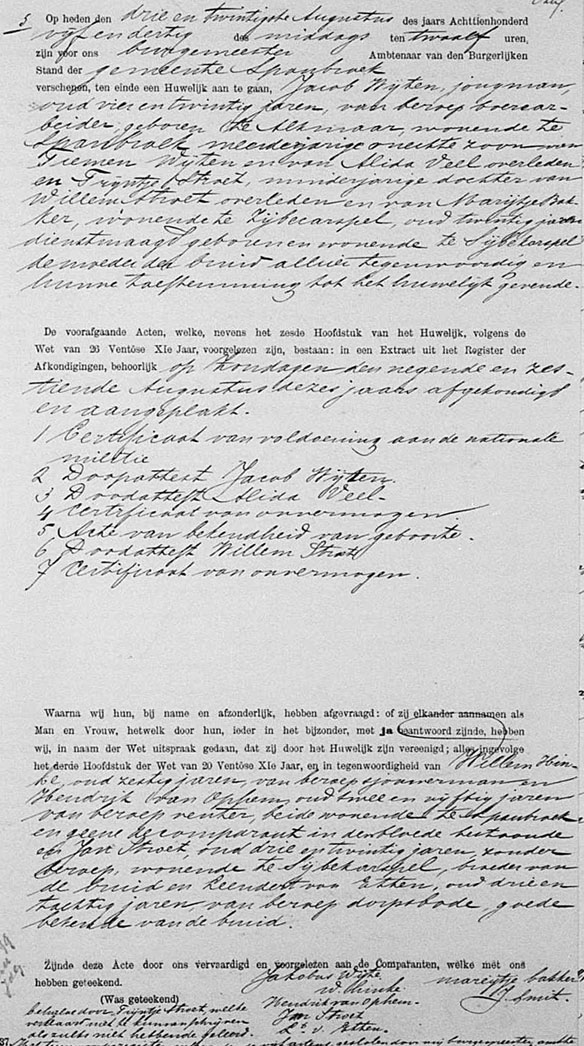 5 Op heden den drie en twintigste Augustus des jaars Achttienhonderd
vyf en dertig des middags ten twaalf uren,
zijn voor ons burgemeester Ambtenaar van den Burgerlijken
Stand der gemeente Spanbroek
verschenen, ten einde een Huwelijk aan te gaan, Jacob Wijten, jongman,
oud vier en twintig jaren, van beroep boerear-
beider, geboren te Alkmaar, wonende te
Spanbroek meerderjarige onechte zoon van
Tiemen Wijten en van Alida Veel overleden
en Trijntje Stroet, minderjarige dochter van
Willem Stroet overleden en van Marijtje Bak-
ker, wonende te Zijbecarspel, oud twintig jaren
dienstmaagd geboren en wonende te Sijbekarspel
de moeder der bruid alhier tegenwoordig en
hunne toestemming tot het huwelijk gevende.
De voorafgaande Acten, welke, nevens het zesde Hoofdstuk van het Huwelijk, volgens de
Wet van 26 Ventôse XIe Jaar, voorgelezen zijn, bestaan: in een Extract uit het Register der
Afkondigingen, behoorlijk op Zondagen den negende en zes-
tiende Augustus dezes jaars afgekondigd
en aangeplakt.
1 Certificaat van voldoening aan de nationale
militie
2 Doopattest Jacob Wijten.
3 Doodattest Alida Veel-
4 Certificaat van onvermogen
5 Acte van bekendheid van geboorte.
6 Doodattest Willem Stroet
7 Certificaat van onvermogen.
Waarna wij hun, bij name en afzonderlijk, hebben afgevraagd: of zij elkander aannamen als
Man en Vrouw, hetwelk door hun, ieder in het bijzonder, met ja beantwoord zijnde, hebben
wij, in naam der Wet uitspraak gedaan, dat zij door het Huwelijk zijn vereenigd; alles ingevolge
het derde Hoofdstuk der Wet van 20 Ventôse XIe Jaar, en in tegenwoordigheid van Willem Hin-
ke, oud zestig jaren, van beroep sjouwerman en
Hendrik van Ophem, oud twee en vijftig jaren
van beroep rentier, beide wonende te Spanbroek
en geene de comparant in den bloede bestaande
en Jan Stroet, oud drie en twintig jaren, zonder
beroep, wonende te Sijbekarspel, broeder van
de bruid en Leendert van Etten, oud drie en
tachtig jaren, van beroep dorpsbode, goede
bekende van de bruid.
Zijnde deze Acte door ons vervaardigd en voorgelezen aan de Comparanten, welke met ons
hebben geteekend. Jakobus Wijte mareytje bakker
(Was geteekend) W. Hinke J. Smit
behalve door Trijntje Stroet, welke Hendrik van Ophem.
verklaart niet te kunnen schrijven Jan Stroet
als zulks niet hebbende geleerd. L. v. Etten.